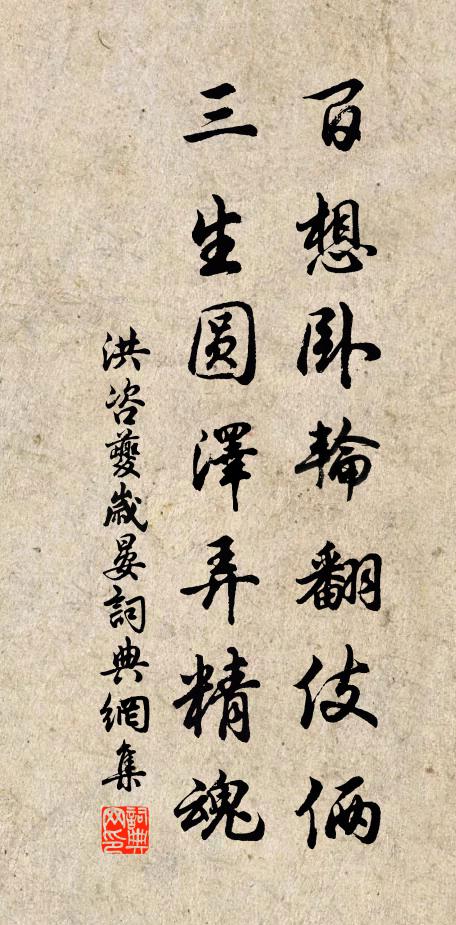 百想卧輪翻伎俩
三生圆澤弄精魂
洪咨夔歲晏詞典網集
詞典網印